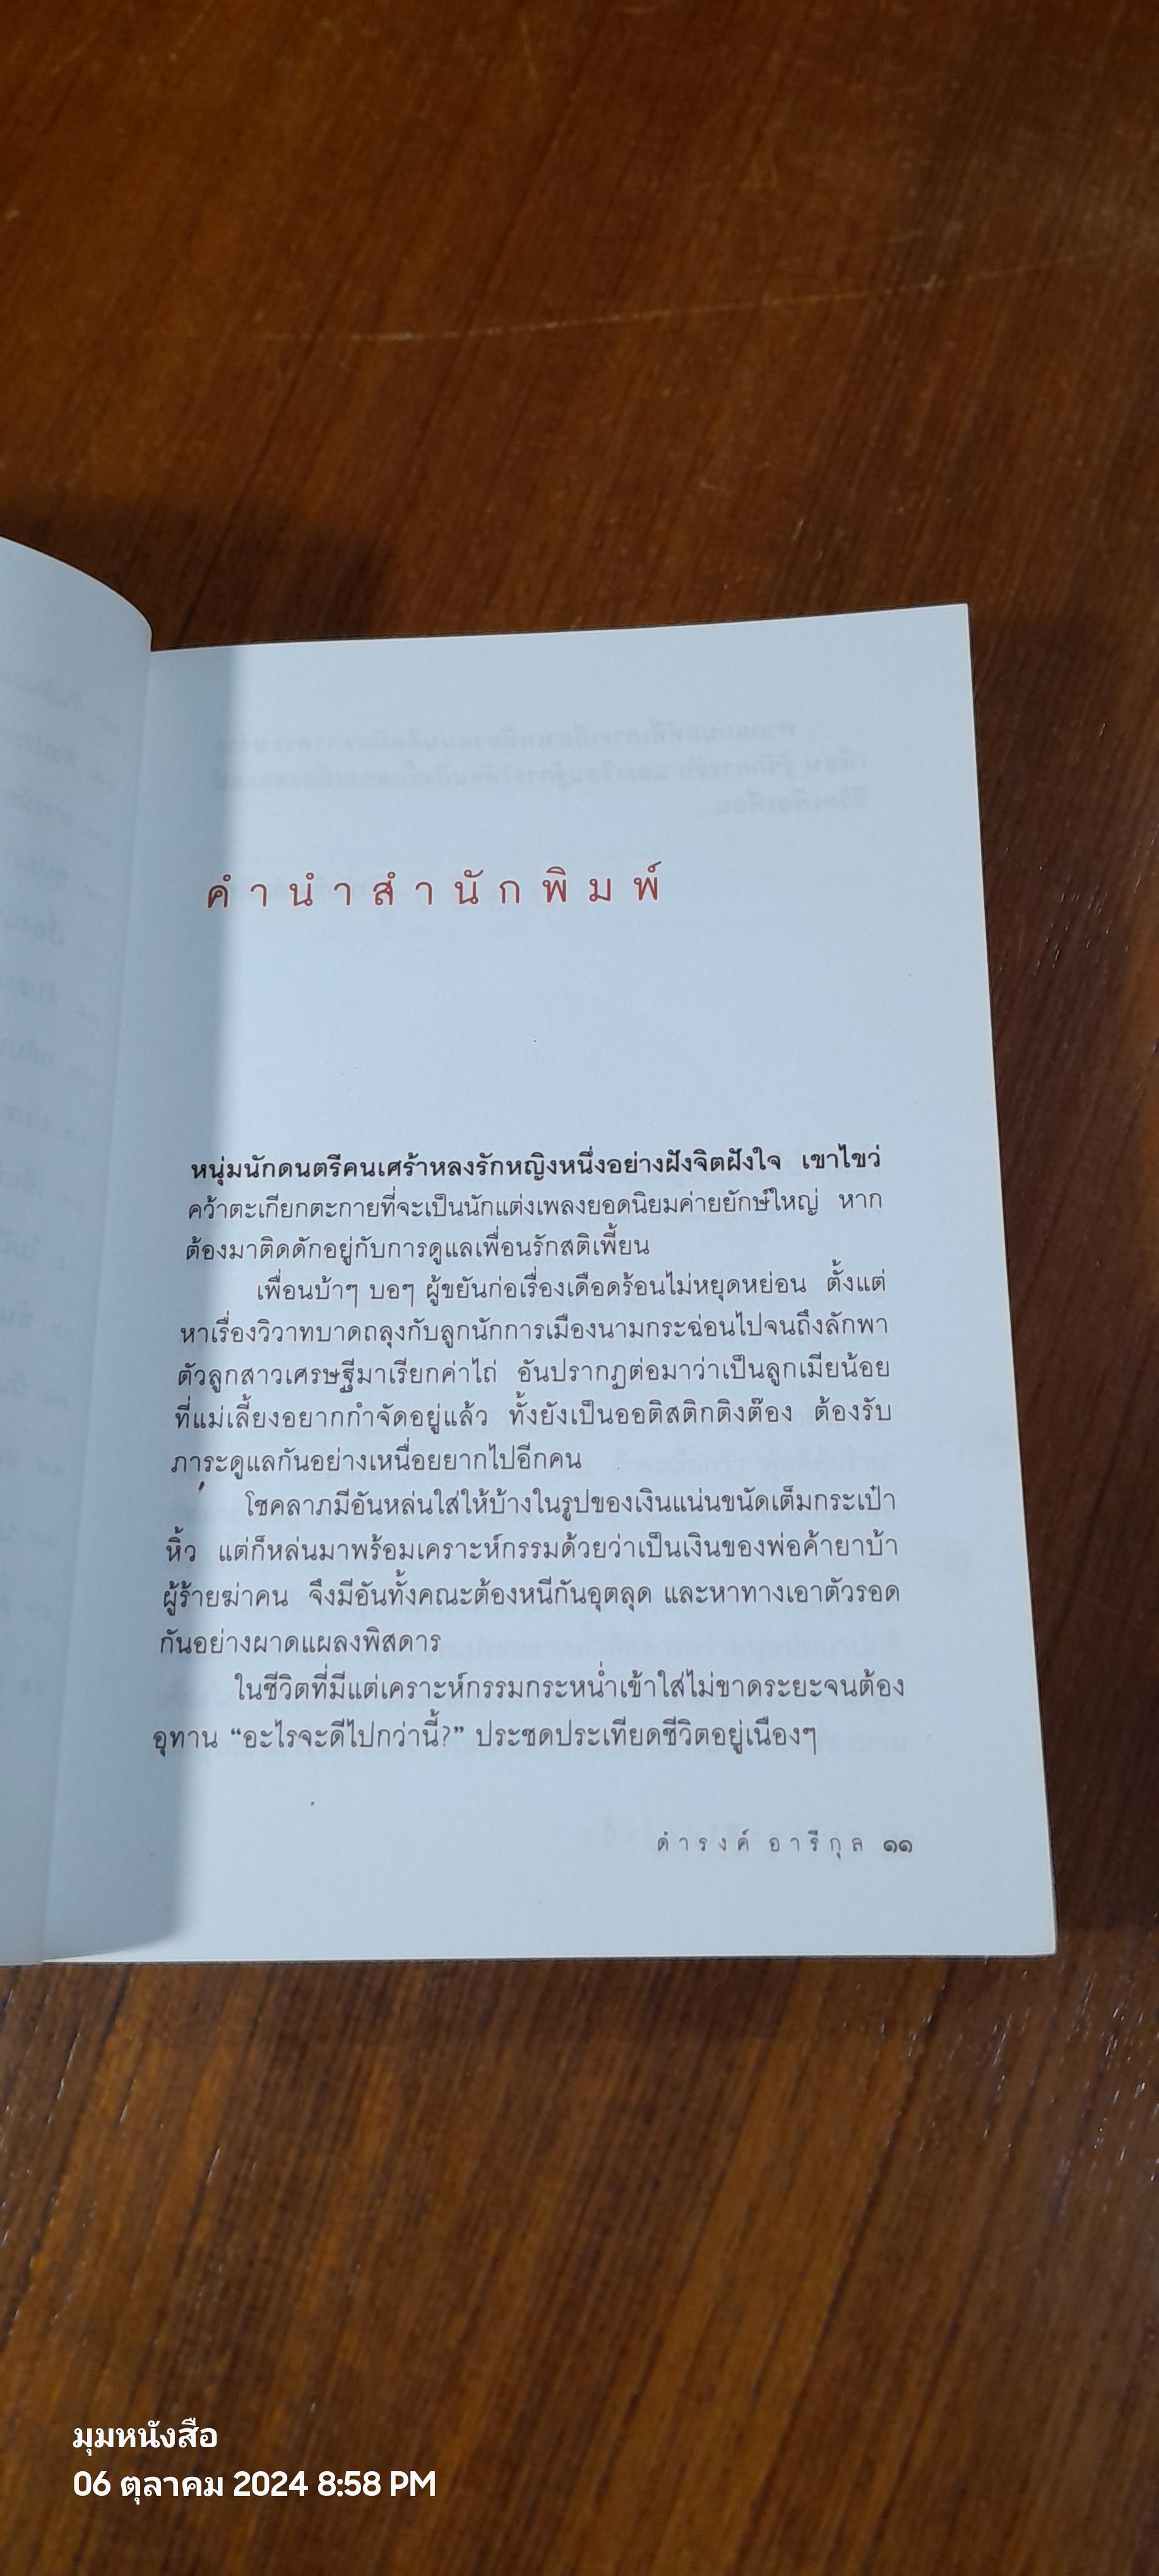 คำนำสำนักพิมพ์
หนุ่มนักดนตรีคนเศร้าหลงรักหญิงหนึ่งอย่างฝังจิตฝังใจ เขาไขว่
คว้าตะเกียกตะกายที่จะเป็นนักแต่งเพลงยอดนิยมค่ายยักษ์ใหญ่ หาก
ต้องมาติดดักอยู่กับการดูแลเพื่อนรักสติเพี้ยน
เพื่อนบ้าๆ บอๆ ผู้ขยันก่อเรื่องเดือดร้อนไม่หยุดหย่อน ตั้งแต่
หาเรื่องวิวาทบาดถลุงกับลูกนักการเมืองนามกระฉ่อนไปจนถึงลักพา
ตัวลูกสาวเศรษฐีมาเรียกค่าไถ่ อันปรากฏต่อมาว่าเป็นลูกเมียน้อย
ที่แม่เลี้ยงอยากกำจัดอยู่แล้ว ทั้งยังเป็นออติสติกติงต๊อง ต้องรับ
ภาระดูแลกันอย่างเหนื่อยยากไปอีกคน
โชคลาภมีอันหล่นใส่ให้บ้างในรูปของเงินแน่นขนัดเต็มกระเป๋า
หิ้ว แต่ก็หล่นมาพร้อมเคราะห์กรรมด้วยว่าเป็นเงินของพ่อค้ายาบ้า
ผู้ร้ายฆ่าคน จึงมีอันทั้งคณะต้องหนีกันอุตลุด และหาทางเอาตัวรอด
กันอย่างผาดแผลงพิสดาร
ในชีวิตที่มีแต่เคราะห์กรรมกระหน่ำเข้าใส่ไม่ขาดระยะจนต้อง
อุทาน “อะไรจะดีไปกว่านี้?” ประชดประเทียดชีวิตอยู่เนืองๆ
ดำรงค์ อารีกุล ๑๑
มุมหนังสือ
06 ตุลาคม 2024 8:58 PM